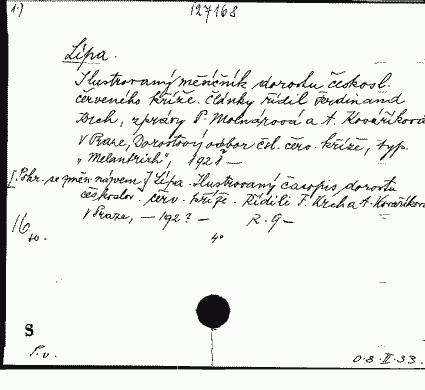 1.) 127168
Lípa.
Ilustrovaný měsíčník dorostu českosl.
červeného kříže. Články řídil Ferdinand
Krch, zprávy P. Molnárová a A. Kováříková
V Praze, Dorostový odbor čsl. červ. kříže, typ.
„Melantrich", 192? —
[Pokr. se změn. názvem:] Lípa. Ilustrovaný časopis dorostu
českoslov. červ. kříže. Řídili F. Krch a A. Kováříková
V Praze, — 192? — R. 9 —
16 4°
S
P.v. D.8.II.33.